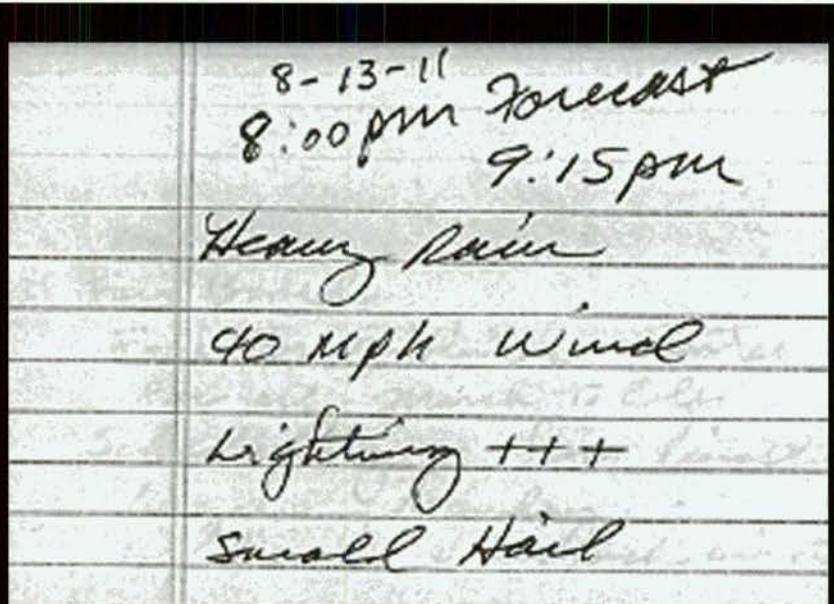 8-13-11
8:00pm Forecast
9:15pm
Heavy Rain
40 MPH Wind
Lightning +++
Small Hail